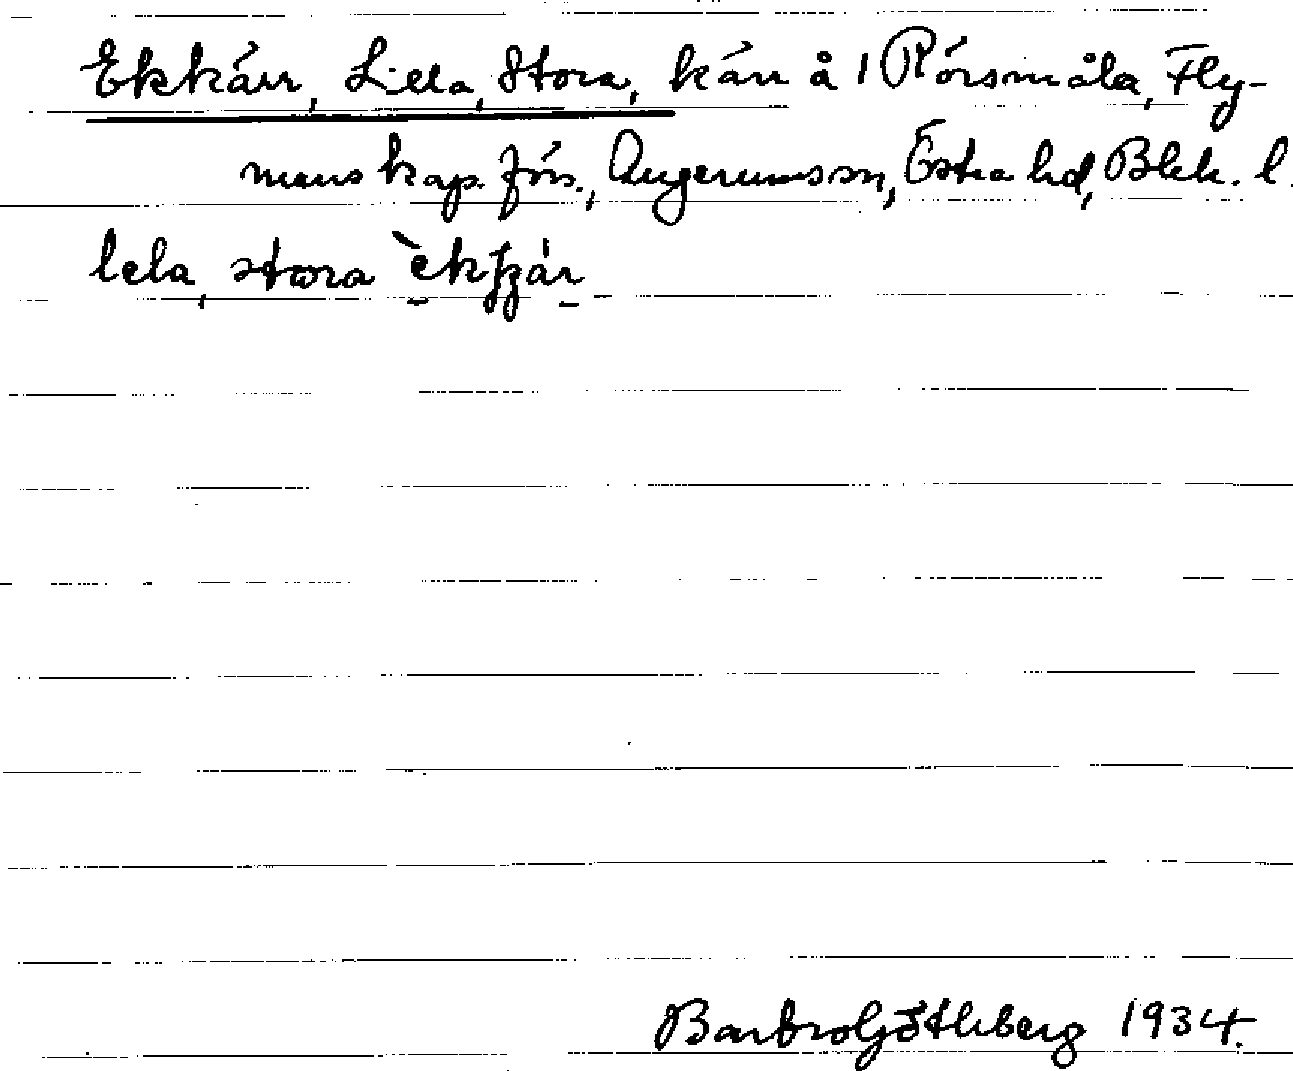 Ekkärr, Lilla, Stora, kärr å 1 Rörsmåla, Fly-
mens kap. förs., Augerums sn, Östra hd, Blek. l.
lela, stora
Barbro Götlberg 1934.